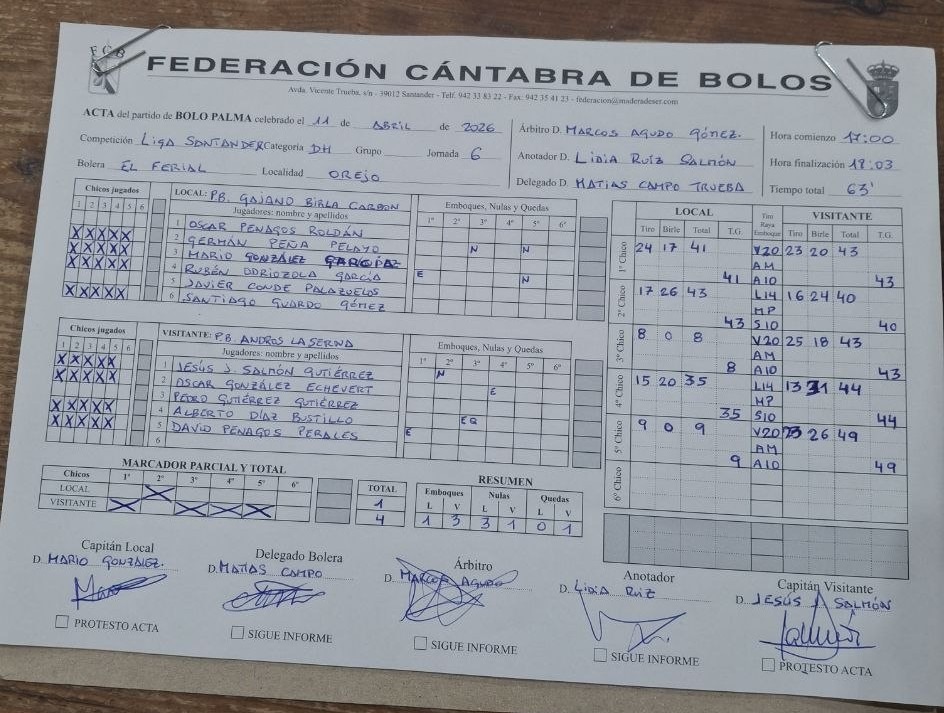 FCB
FEDERACIÓN CÁNTABRA DE BOLOS
Avda. Vicente Trueba, s/n - 39012 Santander - Telf. 942 33 83 22 - Fax: 942 35 41 23 - federacion@maderadeser.com
ACTA del partido de BOLO PALMA celebrado el 11 de ABRIL de 2026
Competición LIGA SANTANDER Categoría DH Grupo Jornada 6
Bolera EL FERIAL Localidad OREJO
Árbitro D. MARCOS AGUDO GÓMEZ.
Anotador D. LIDIA RUIZ SALMÓN
Delegado D. MATIAS CAMPO TRUEBA
Hora comienzo 17:00
Hora finalización 18:03
Tiempo total 63'
Chicos jugados
1 2 3 4 5 6
X X X X X
X X X X X
X X X X X
X X X X X
LOCAL: P.B. GAJANO BIRLA CARBON
Jugadores: nombre y apellidos
1 OSCAR PENAGOS ROLDÁN
2 GERMÁN PEÑA PELAYO
3 MARIO GONZÁLEZ
4 RUBÉN ODRIOZOLA GARCÍA
5 JAVIER CONDE PALAZUELOS
6 SANTIAGO GUARDO GÓMEZ
Emboques, Nulas y Quedas
1º 2º 3º 4º 5º 6º
N N
E N
Chicos jugados
1 2 3 4 5 6
X X X X X
X X X X X
X X X X X
X X X X X
VISITANTE: P.B. ANDROS LA SERNA
Jugadores: nombre y apellidos
1 JESÚS J. SALMÓN GUTIÉRREZ
2 OSCAR GONZÁLEZ ECHEVERT
3 PEDRO GUTIÉRREZ GUTIÉRREZ
4 ALBERTO DÍAZ BUSTILLO
5 DAVID PENAGOS PERALES
6
Emboques, Nulas y Quedas
1º 2º 3º 4º 5º 6º
N
E
E Q
E
LOCAL Tiro Raya Emboque VISITANTE
Tiro Birle Total T.G. Tiro Birle Total T.G.
1º Chico 24 17 41 V20 23 20 43
AM
41 A10 43
2º Chico 17 26 43 L14 16 24 40
MP
43 S10 40
3º Chico 8 0 8 V20 25 18 43
AM
8 A10 43
4º Chico 15 20 35 L14 13 31 44
MP
35 S10 44
5º Chico 9 0 9 V20 23 26 49
AM
9 A10 49
6º Chico
MARCADOR PARCIAL Y TOTAL
Chicos 1º 2º 3º 4º 5º 6º
LOCAL X
VISITANTE X X X X
TOTAL
1
4
RESUMEN
Emboques Nulas Quedas
L V L V L V
1 3 3 1 0 1
Capitán Local
D. MARIO GONZÁLEZ.
PROTESTO ACTA
Delegado Bolera
D. MATÍAS CAMPO
SIGUE INFORME
Árbitro
D. MARCOS AGUDO
SIGUE INFORME
Anotador
D. LIDIA RUIZ
SIGUE INFORME
Capitán Visitante
D. JESÚS J SALMÓN
PROTESTO ACTA